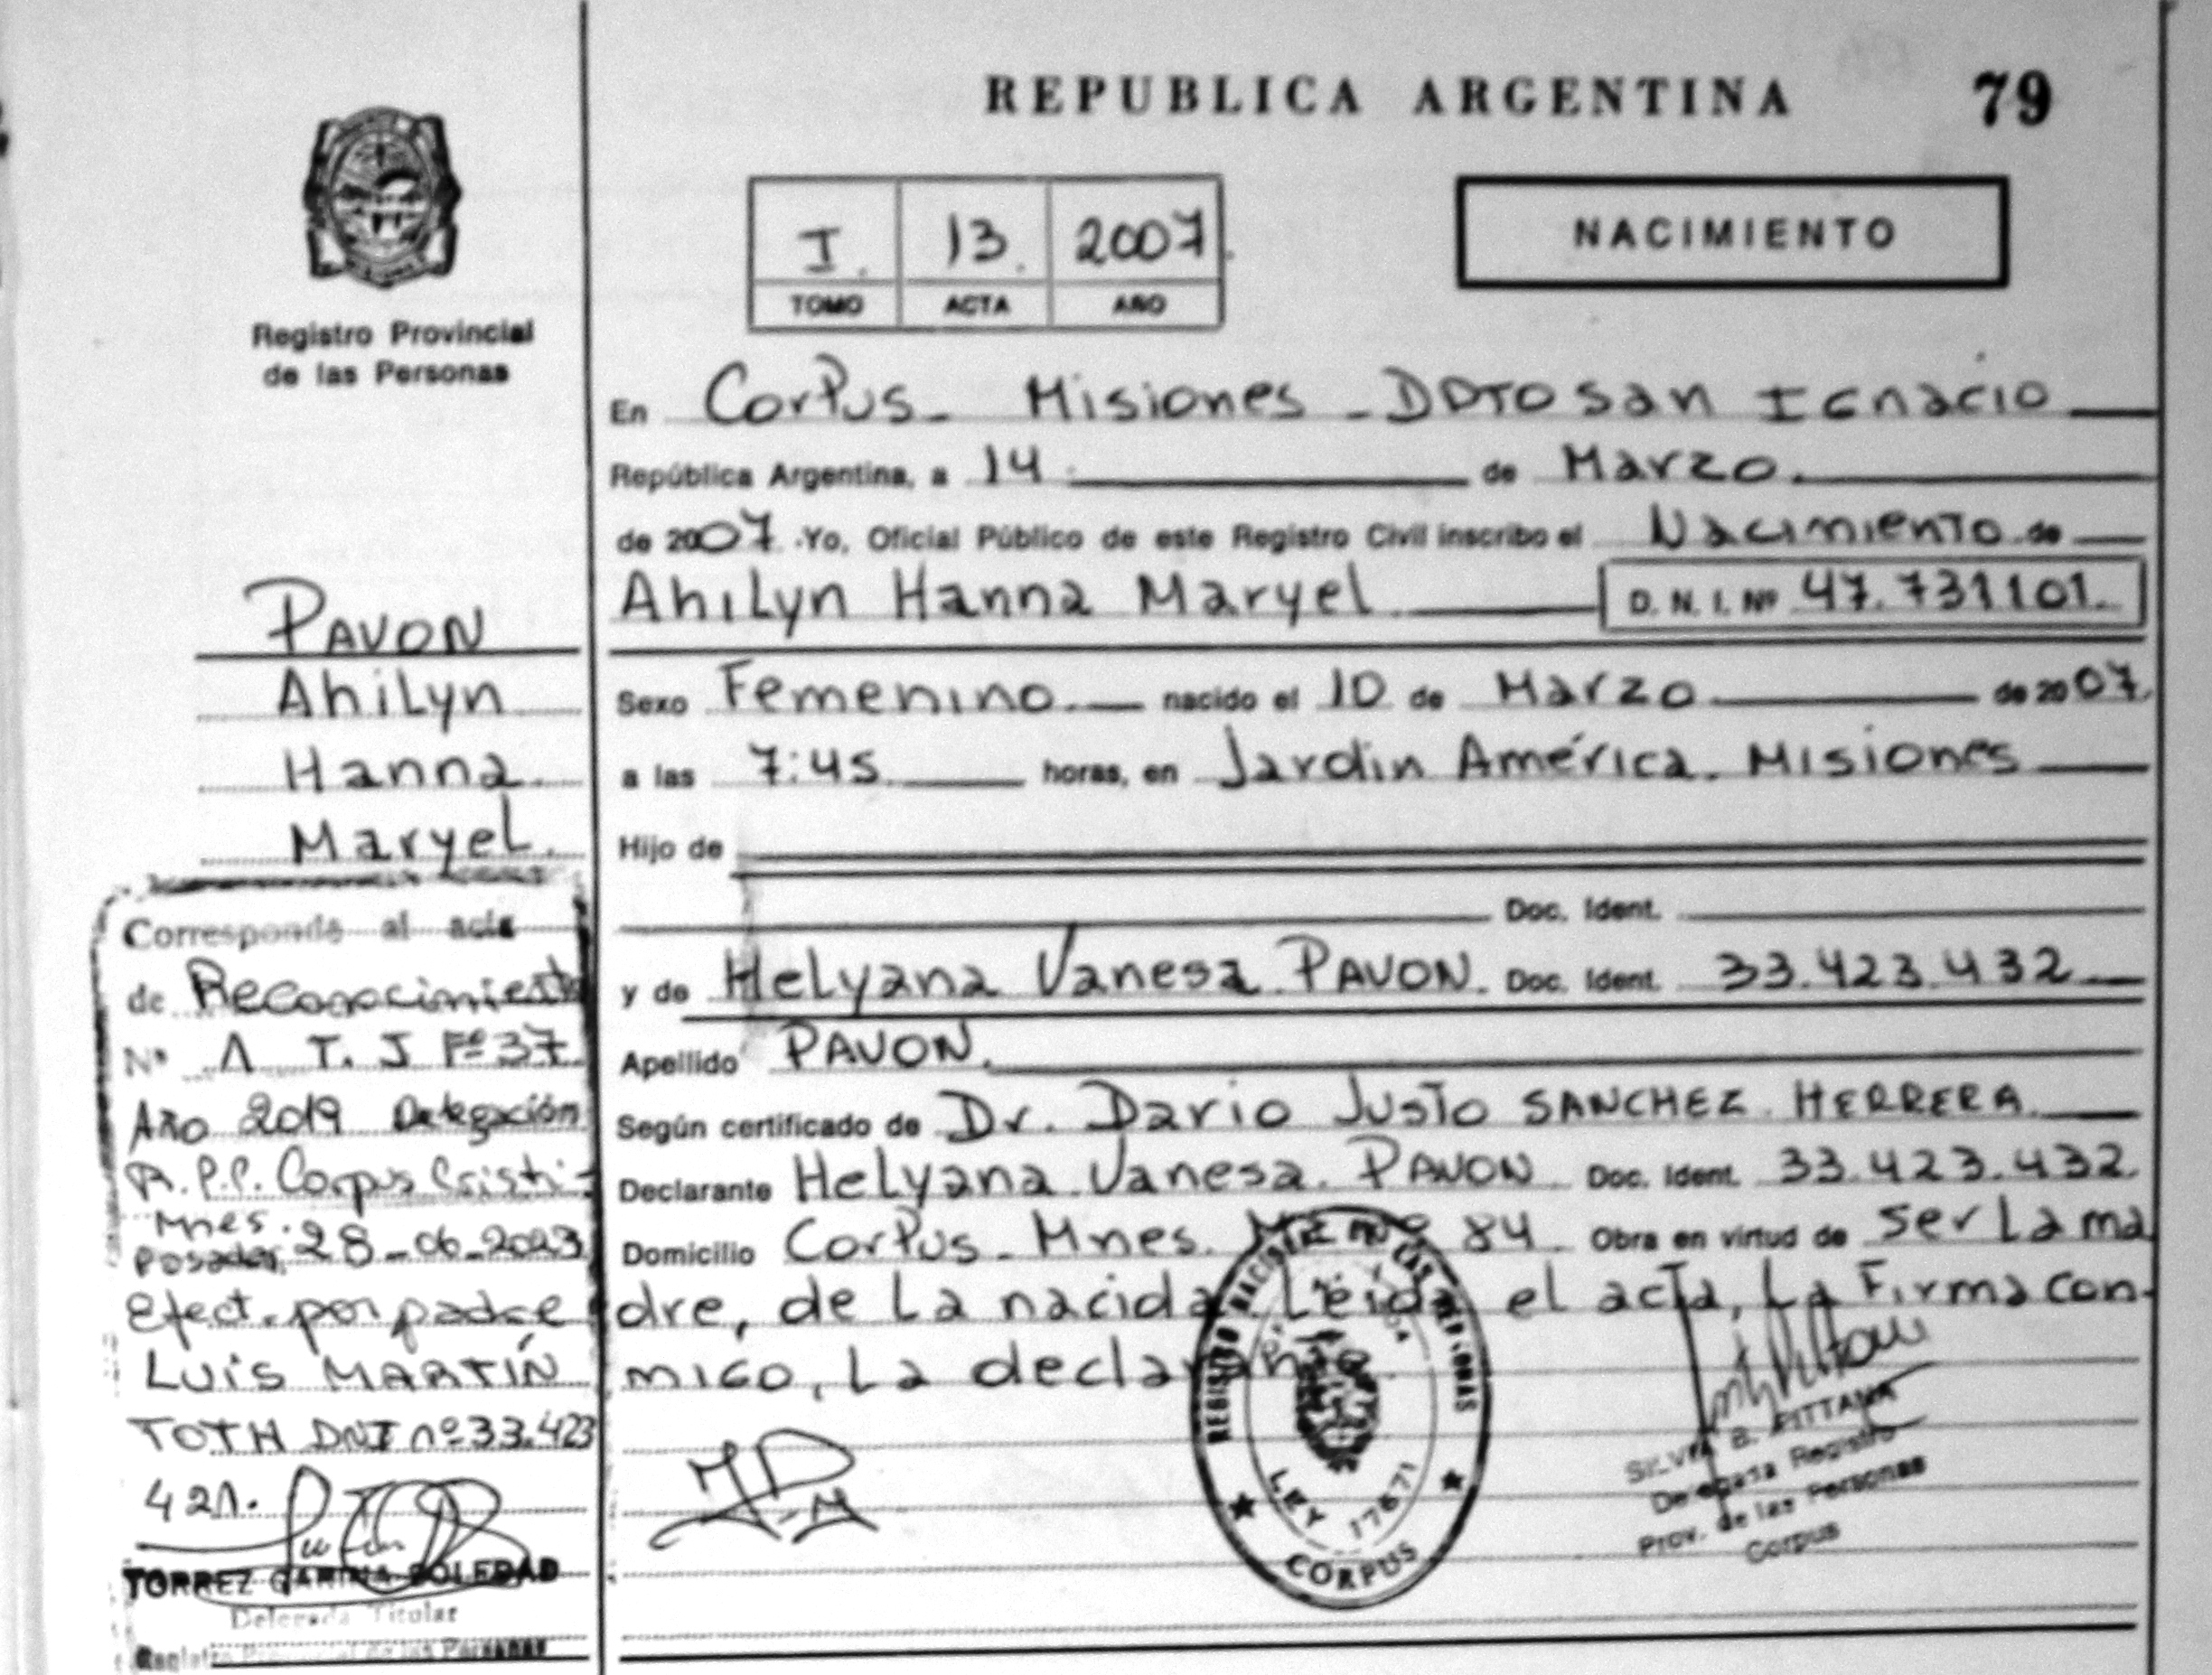 REPUBLICA ARGENTINA 79
I. 13. 2007.
TOMO ACTA AÑO
NACIMIENTO
Registro Provincial
de las Personas
En Corpus - Misiones - DPTO San Ignacio
República Argentina, a 14 de Marzo.
de 2007 .Yo, Oficial Público de este Registro Civil inscribo el Nacimiento de
Ahilyn Hanna Maryel D. N. I. Nº 47.731101.
Sexo Femenino. nacido el 10 de Marzo de 2007.
a las 7:45 horas, en Jardin América. Misiones
Hijo de
Doc. Ident.
y de Helyana Vanesa PAVON. Doc. Ident. 33.423.432
Apellido PAVON.
Según certificado de Dr. Dario Justo SANCHEZ HERRERA
Declarante Helyana Vanesa PAVON Doc. Ident. 33.423.432.
Domicilio Corpus - Mnes. 84 Obra en virtud de ser La ma
dre, de La nacida. Leida el acta, La Firma con-
migo, La
PAVON
Ahilyn
Hanna
Maryel.
Corresponde al acta
de Reconocimiento
Nº 1 T. I Fº 37
Año 2019 Delegación
R.P.P. Corpus Cristi-
Mnes.
Posadas, 28-06-2023
Efect. por padre
LUIS MARTÍN
TOTH DNI nº 33.423
421.
TORREZ CARINA SOLEDAD
Delegada Titular
Registro Provincial de las Personas
REGISTRO NACIONAL DE LAS PERSONAS
LEY 17671
CORPUS
SILVIA B. PITTANA
Delegada Registro
Prov. de las Personas
Corpus